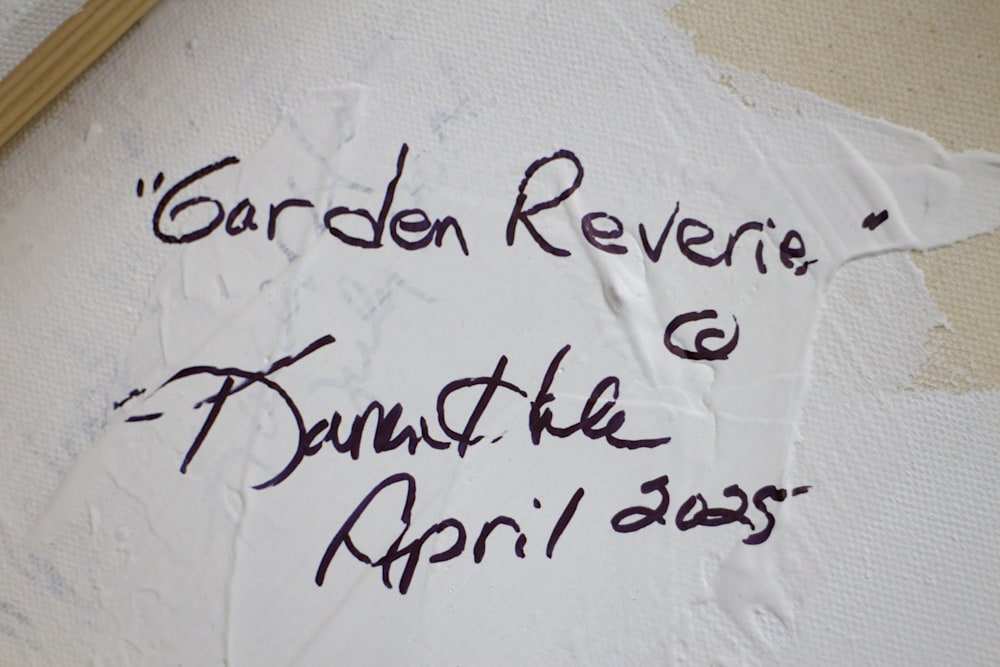 "Garden Reverie"
©
April 2025